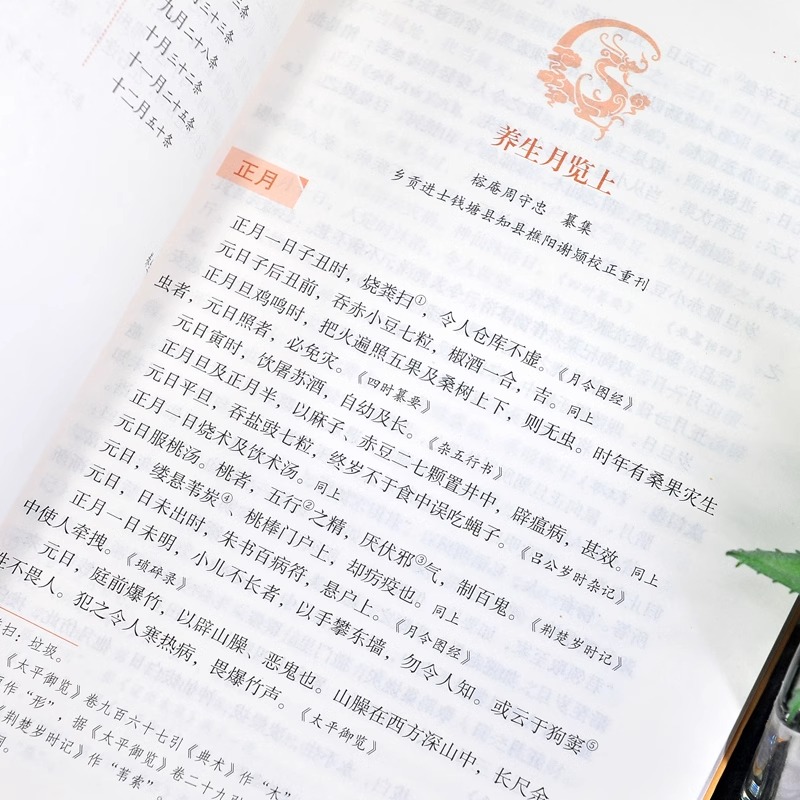 三十三条
九月二十八条
十月三十二条
十一月二十五条
十二月五十条
养生月览上
榕庵周守忠 纂集
乡贡进士钱塘县知县樵阳谢颎校正重刊
正月
正月一日子丑时，烧粪扫①，令人仓库不虚。《月令图经》
元日子后丑前，吞赤小豆七粒，椒酒一合，吉。同上
正月旦鸡鸣时，把火遍照五果及桑树上下，则无虫。时年有桑果灾生
虫者，元日照者，必免灾。《四时纂要》
元日寅时，饮屠苏酒，自幼及长。《杂五行书》
正月旦及正月半，以麻子、赤豆二七颗置井中，辟瘟病，甚效。同上
元日平旦，吞盐豉七粒，终岁不于食中误吃蝇子。《吕公岁时杂记》
正月一日烧术及饮术汤。同上
元日服桃汤。桃者，五行②之精，厌伏邪③气，制百鬼。《荆楚岁时记》
元日，缕悬苇炭④、桃棒门户上，却疠疫也。同上
元日，日未出时，朱书百病符，悬户上。《月令图经》
正月一日未明，小儿不长者，以手攀东墙，勿令人知。或云于狗窦⑤
中使人牵拽。《琐碎录》
元日，庭前爆竹，以辟山臊、恶鬼也。山臊在西方深山中，长尺余
性不畏人。犯之令人寒热病，畏爆竹声。《太平御览》
扫：垃圾。
《太平御览》卷九百六十七引《典术》作“木”
作“形”，据《太平御览》卷二十九引
《荆楚岁时记》作“苇索”。
同。